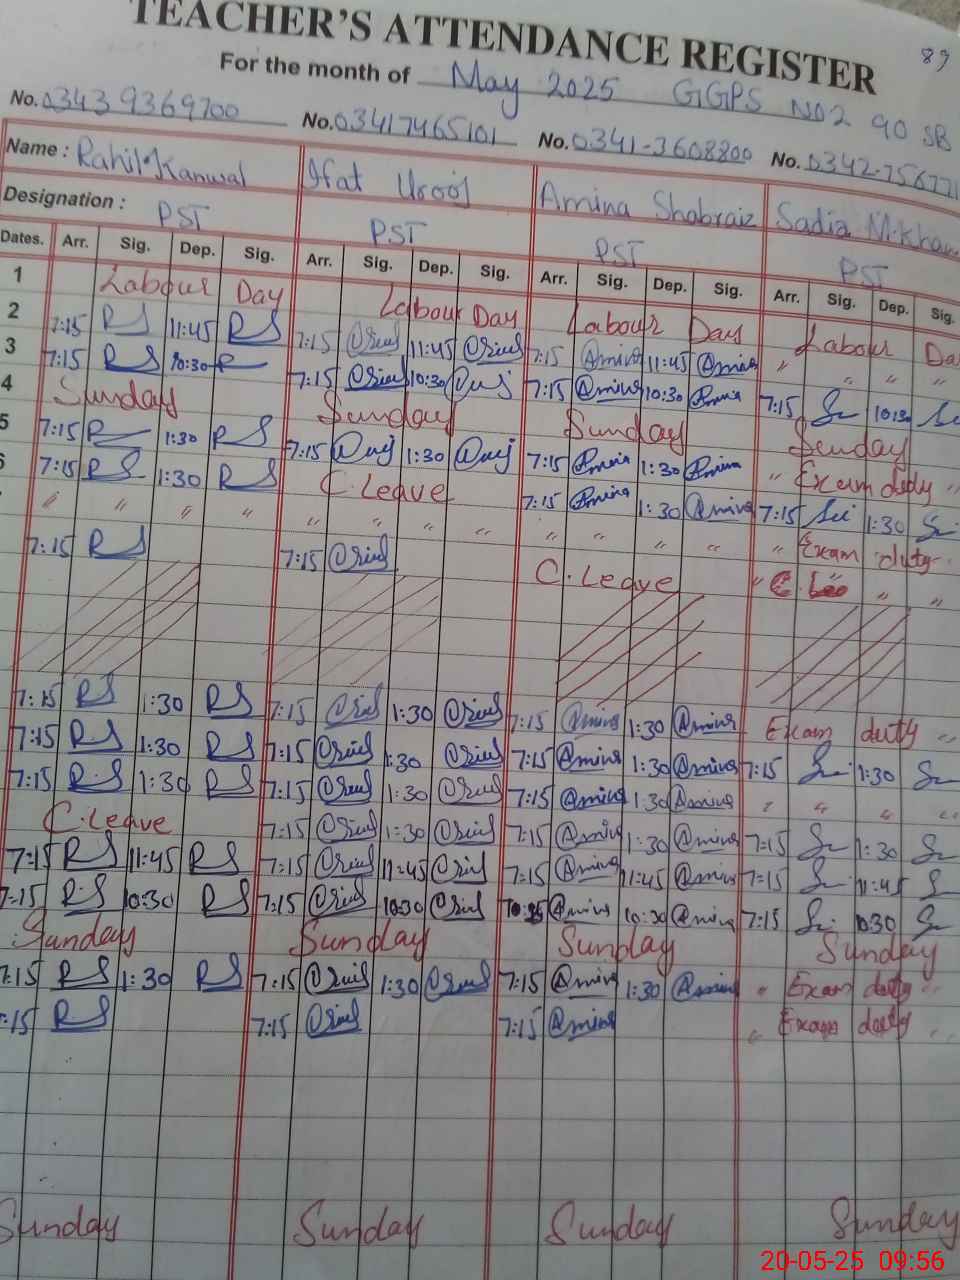 TEACHER'S ATTENDANCE REGISTER
89
For the month of May 2025 GGPS NO2 90 SB
No. 0343 9369700 No. 03417465101 No. 0341-3608800 No. 0342-756771
Name: Rahil Kanwal Ifat Urooj Amina Shabraiz Sadia M.Khan
Designation: PST PST PST PST
Dates. Arr. Sig. Dep. Sig. Arr. Sig. Dep. Sig. Arr. Sig. Dep. Sig. Arr. Sig. Dep. Sig.
1 Labour Day Labour Day Labour Day Labour Da
2 7:15 RS 11:45 RS 7:15 11:45 7:15 Amina 11:45 Amina " " " "
3 7:15 RS 10:30 7:15 10:30 7:15 Amina 10:30 Amina 7:15 10:30
4 Sunday Sunday Sunday Sunday
5 7:15 1:30 RS 7:15 1:30 7:15 Amina 1:30 Amina " Exam duty "
6 7:15 RS 1:30 RS C.Leave 7:15 Amina 1:30 Amina 7:15 1:30
" " " " " " " " " " " " " Exam duty "
7:15 RS 7:15 C.Leave " " "
7:15 RS 1:30 RS 7:15 1:30 7:15 Amina 1:30 Amina Exam duty "
7:15 RS 1:30 RS 7:15 1:30 7:15 Amina 1:30 Amina 7:15 1:30
7:15 RS 1:30 RS 7:15 1:30 7:15 Amina 1:30 Amina " " " "
C.Leave 7:15 1:30 7:15 Amina 1:30 Amina 7:15 1:30
7:15 RS 11:45 RS 7:15 11:45 7:15 Amina 11:45 Amina 7:15 11:45
7:15 RS 10:30 RS 7:15 10:30 Amina 10:30 Amina 7:15 10:30
Sunday Sunday Sunday Sunday
7:15 RS 1:30 RS 7:15 1:30 7:15 Amina 1:30 Amina " Exam duty "
:15 RS 7:15 7:15 Amina " Exam duty "
Sunday Sunday Sunday Sunday
20-05-25 09:56